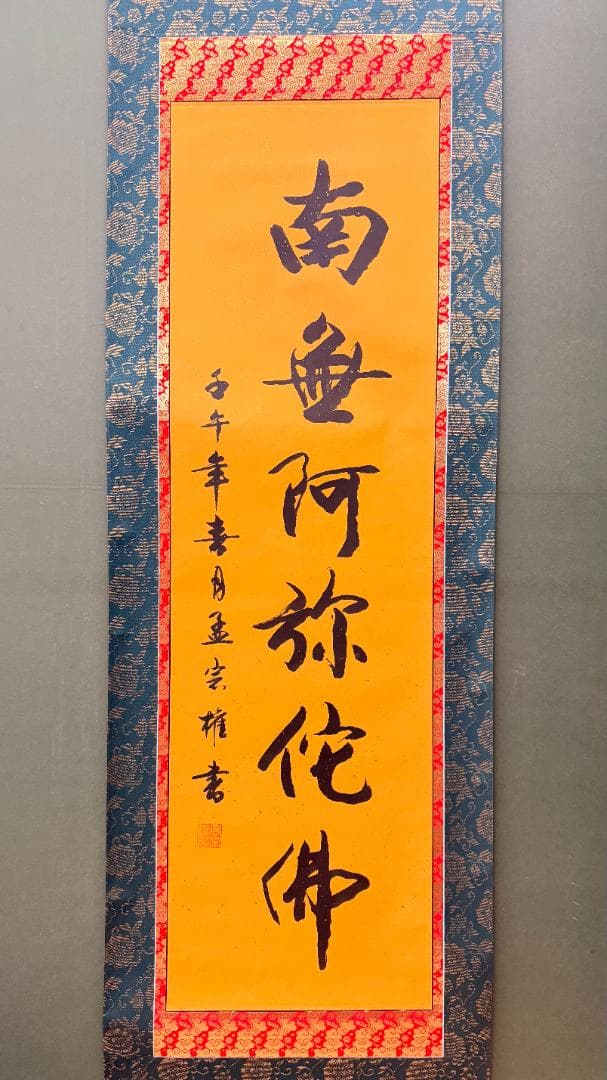 南無阿弥陀佛
壬午年春月孟宗権書